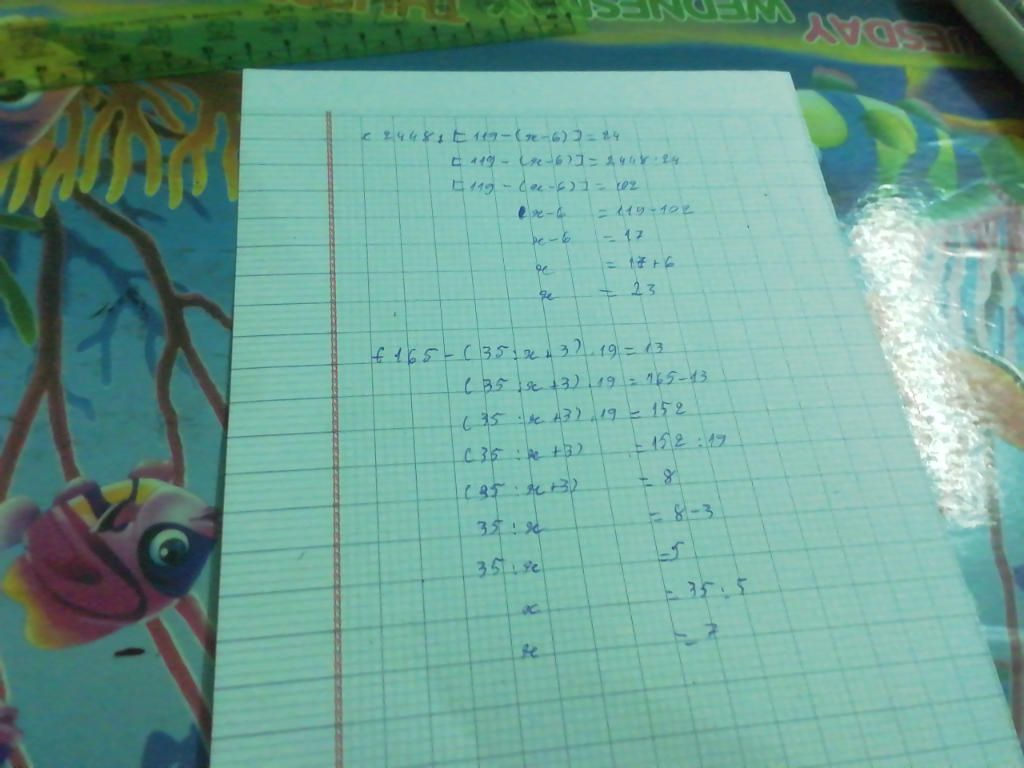 THURSDAY
WEDNESDAY
TUESDAY
c 2448 : [119-(x-6)] = 24
[119-(x-6)] = 2448:24
[119-(x-6)] = 102
x-6 = 119-102
x-6 = 17
x = 17+6
x = 23
f 165-(35:x+3).19=13
(35:x+3).19=165-13
(35:x+3).19=152
(35:x+3) =152:19
(35:x+3) = 8
35:x = 8-3
35:x =5
x = 35:5
x = 7